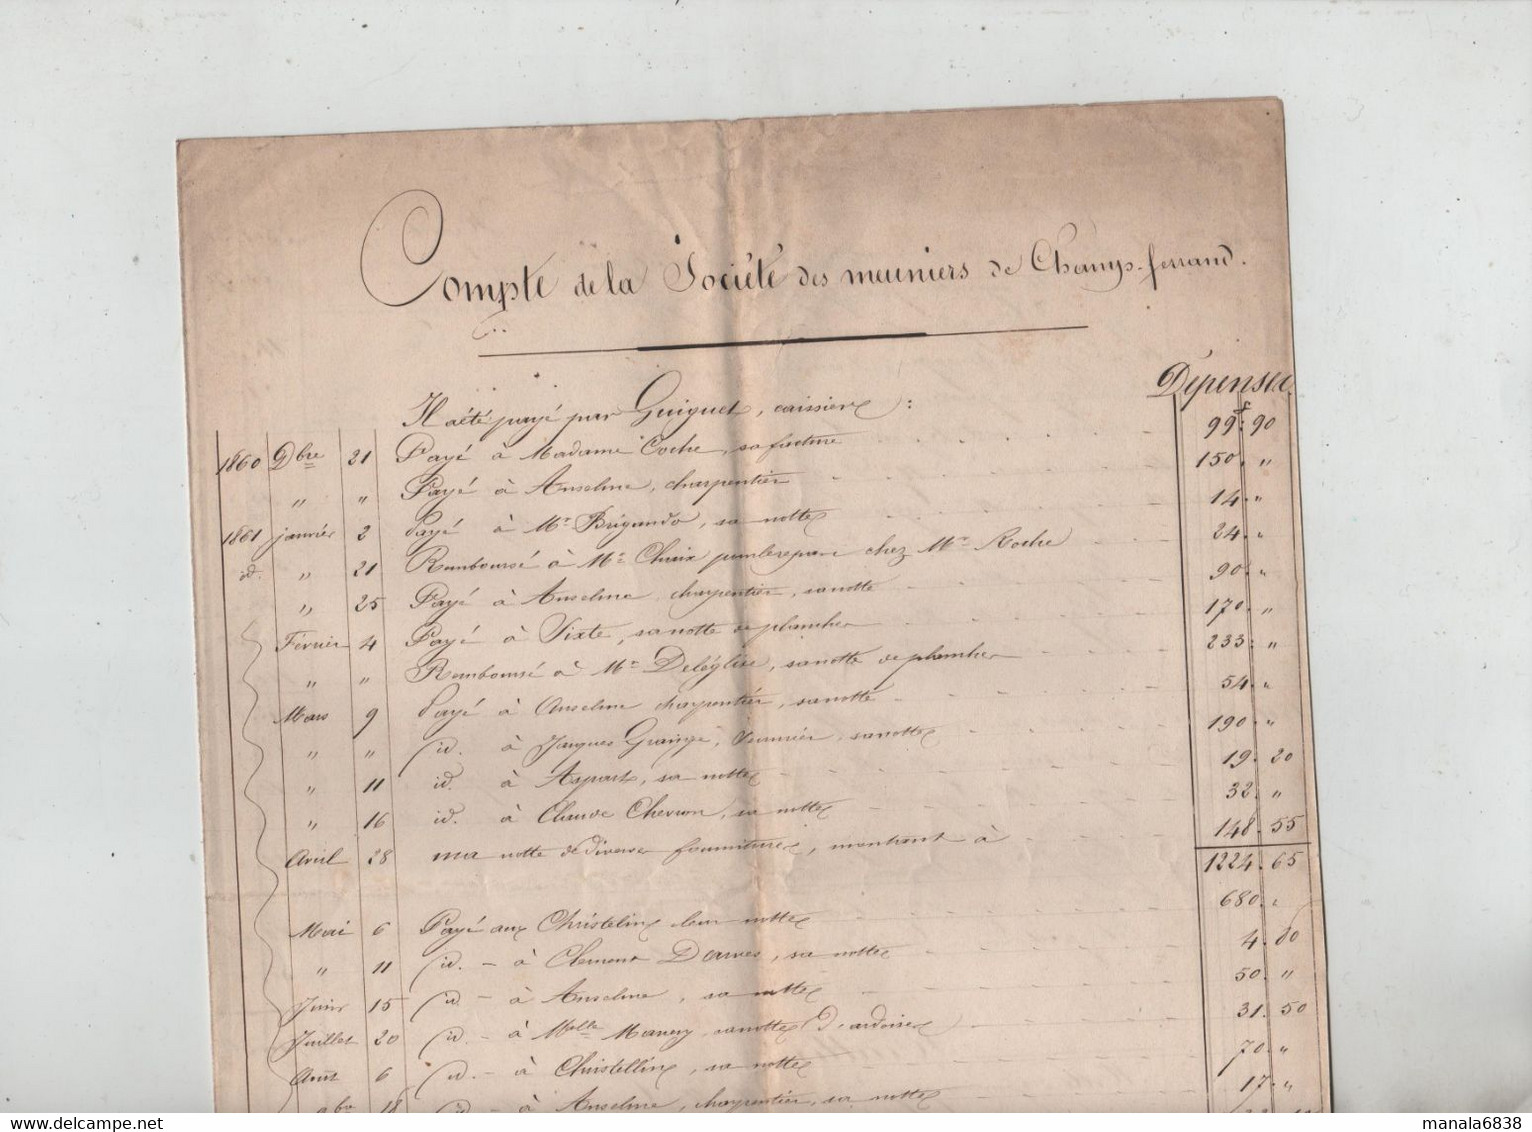 Compte de la Société des meuniers de Champ-ferrand.
Dépenses
Il a été payé par Guiguet, caissier :
1860 Dbre 21 Payé à Madame Coche, sa facture 99f. 90
" " Payé à Anselme, charpentier 150. "
1861 janvier 2 Payé à Mr Brigando, sa notte 14. "
id. " 21 Remboursé à Mr Chaix chez Mr Roche 24. "
" 25 Payé à Anselme charpentier, sa notte 90. "
Février 4 Payé à Sixte, sa notte de plancher 170. "
" " Remboursé à Mr Deléglise, sa notte de plancher 233. "
Mars 9 Payé à Anselme charpentier, sa notte 54. "
" " id. à Jacques Grange, sa notte 190. "
" 11 id. à Aspart, sa notte 19. 20
" 16 id. à Claude Chevron, sa notte 32. "
Avril 28 ma notte de diverses fournitures, montant à 148. 55
1224. 65
Mai 6 Payé aux Christeling leur notte 680. "
" 11 id. - à Clement Darves, sa notte 4. 80
Juin 15 id. - à Anselme, sa notte 50. "
Juillet 20 id. - à Melle Manery, sa notte d'ardoises 31. 50
Août 6 id. - à Christelling, sa notte 70. "
9bre 18 id. - à Anselme, charpentier, sa notte 17. "
manala6838